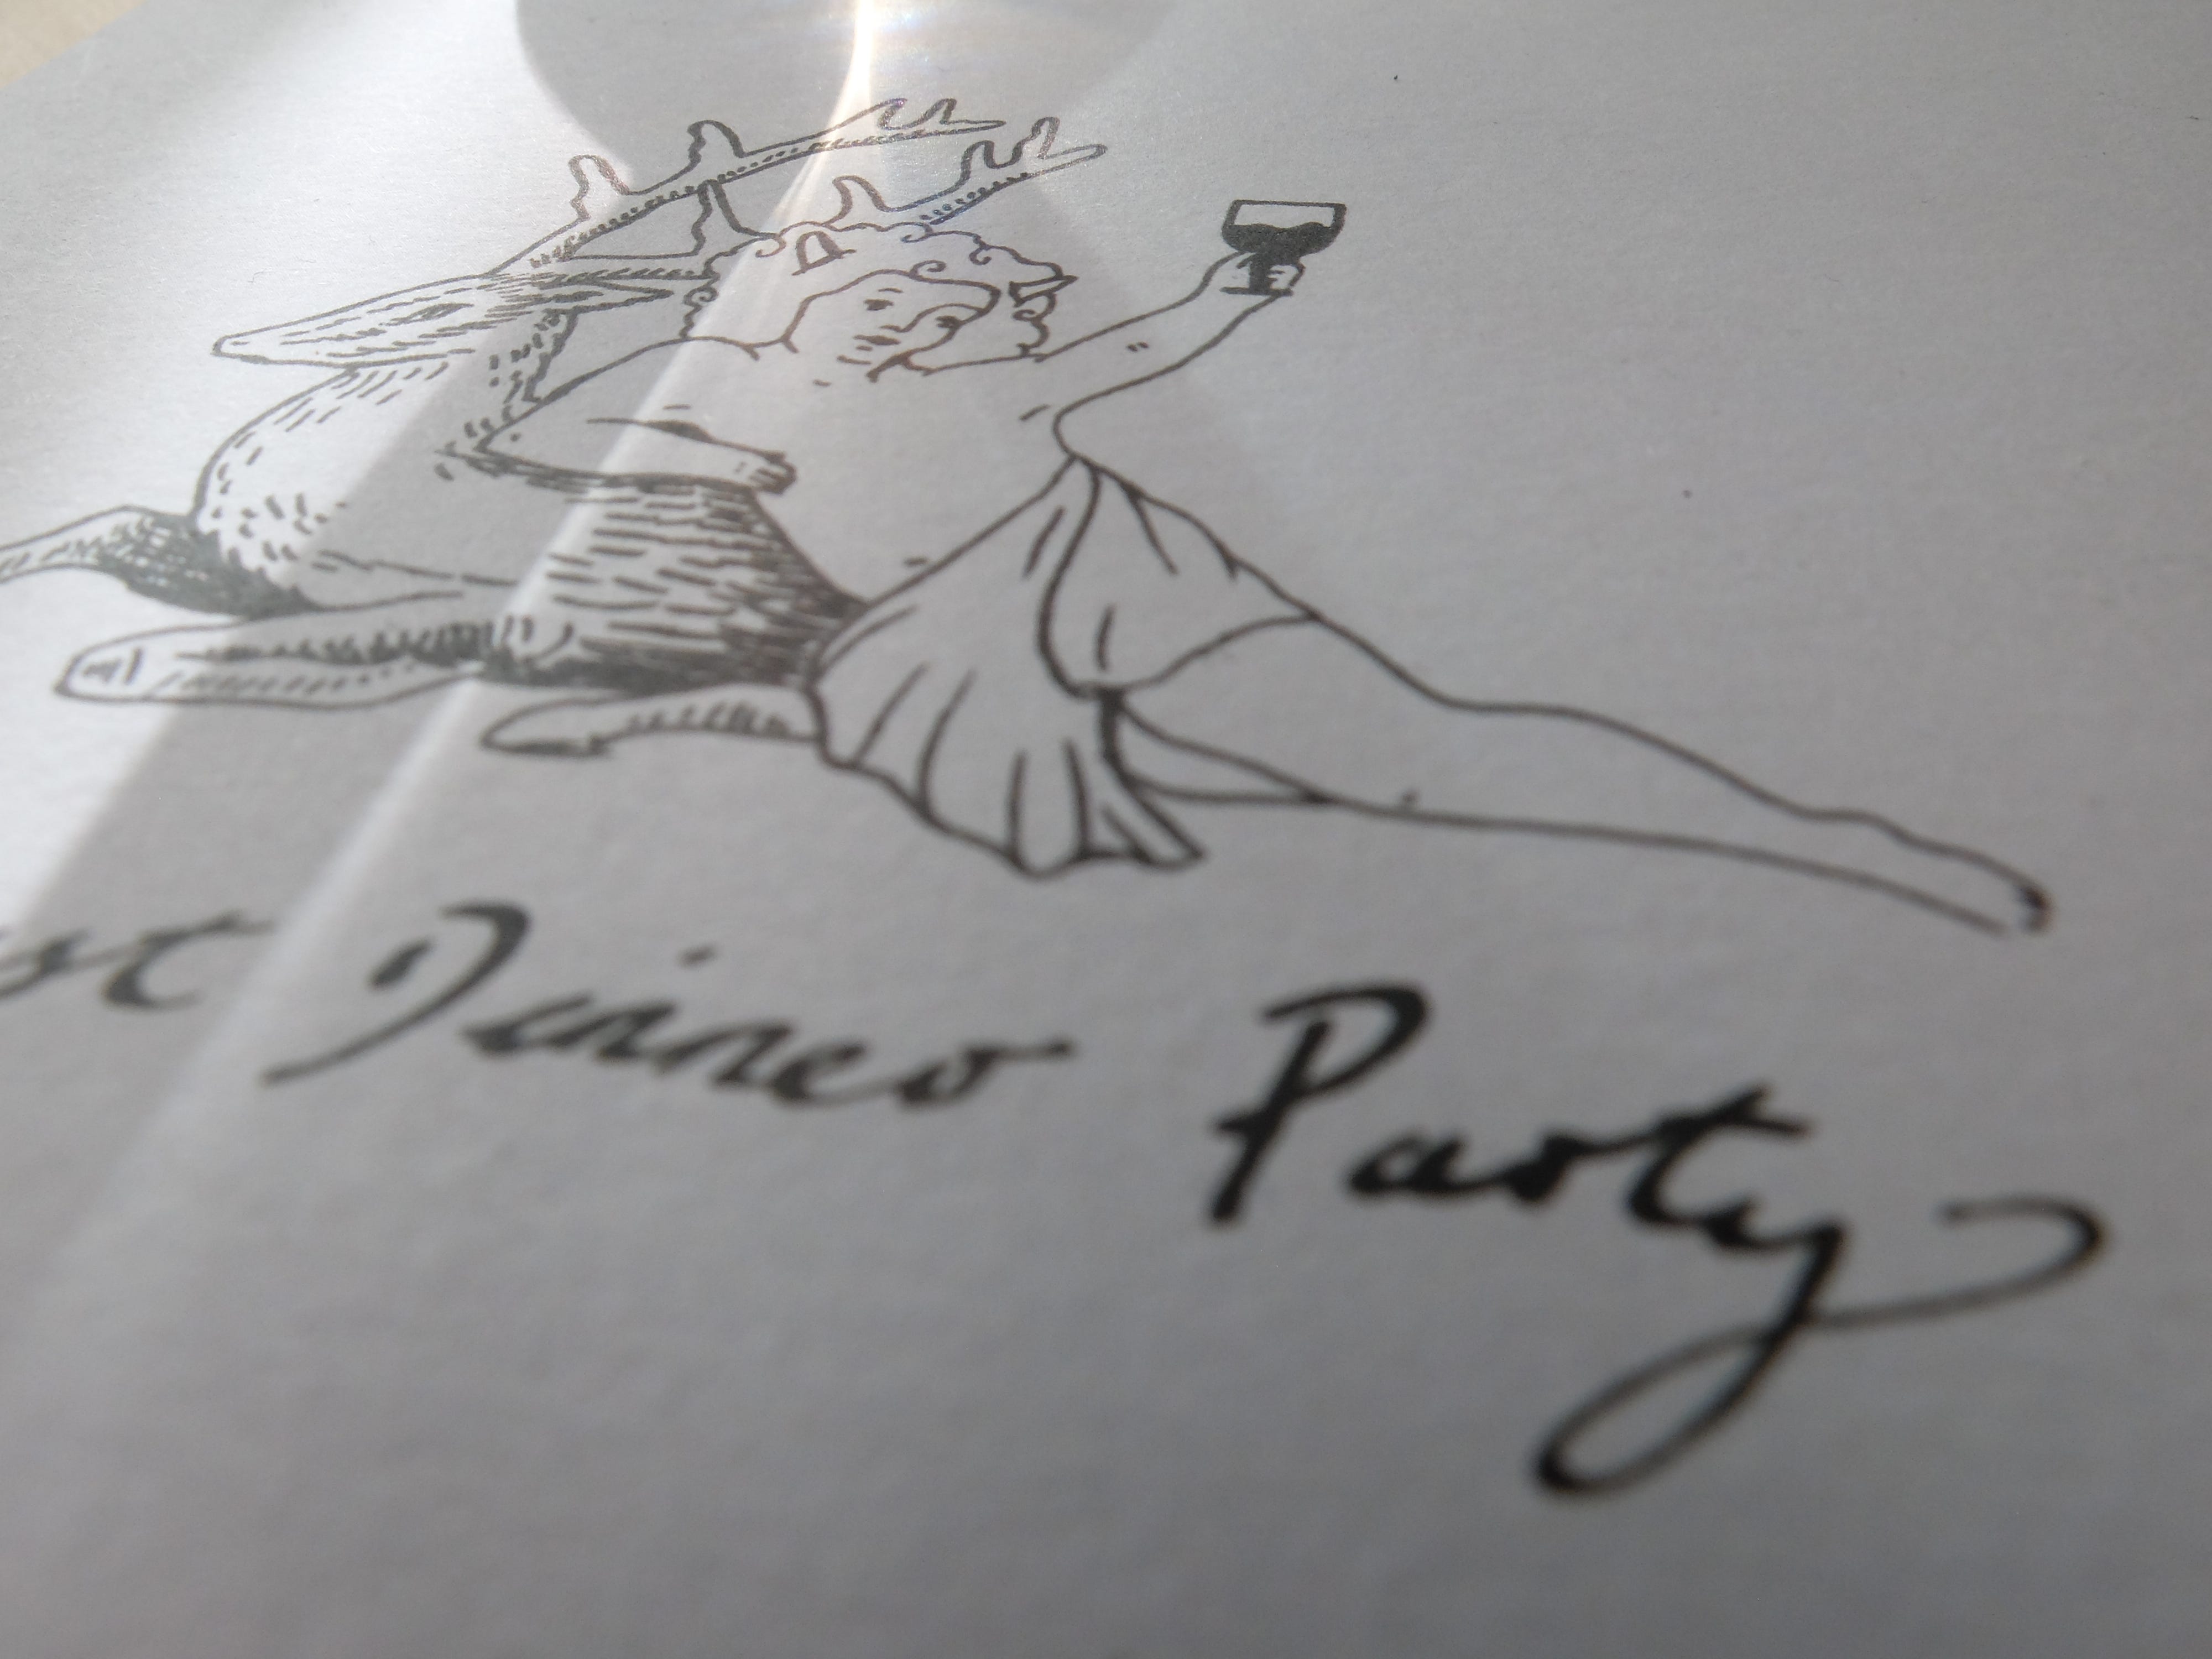 st Dinner Party